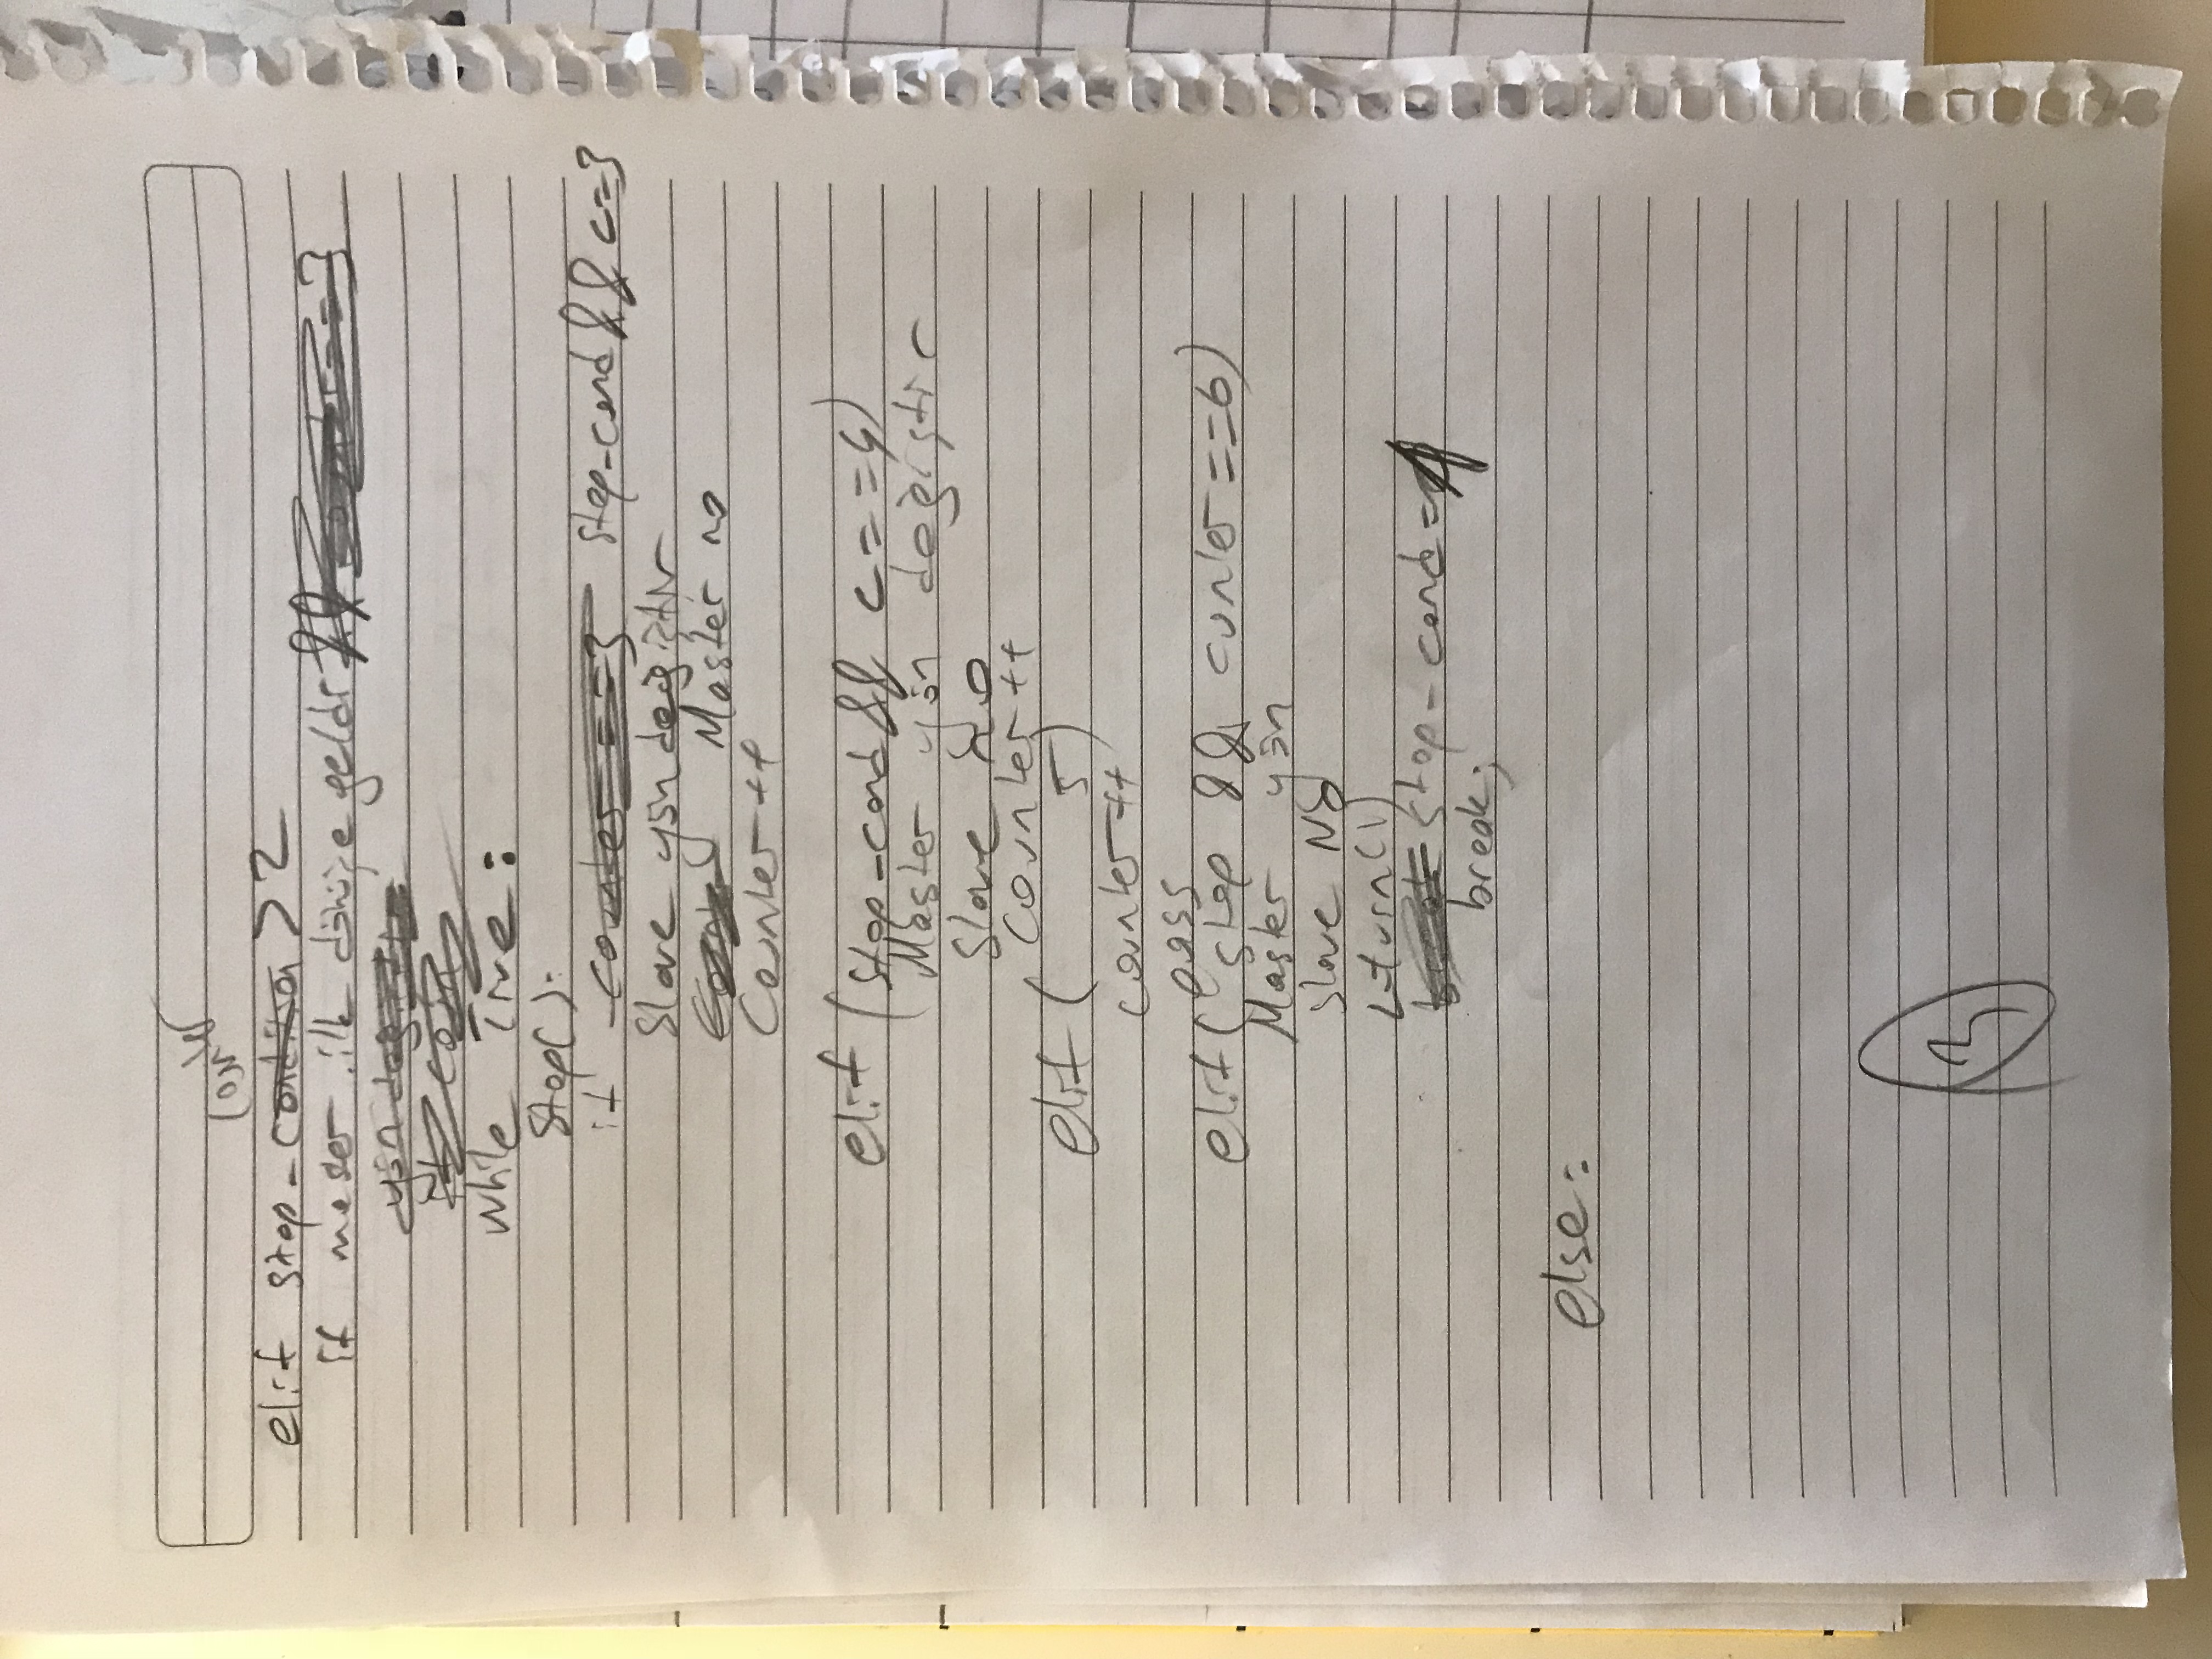 counter
elif stop-condition >2
if master ilk dönüşe geldi &&
yön değiştir
if
while true:
Stop():
if counter ==3 stop-cond && c==3
Slave yön değiştir
Master no
Counter ++
elif (stop-cond && c==4)
Master yön değiştir
Slave no
Counter ++
elif ( 5)
counter ++
pass
elif( stop && cunter ==6)
Master yön
slave No
return(1)
break stop-cond=
break;
else:
3